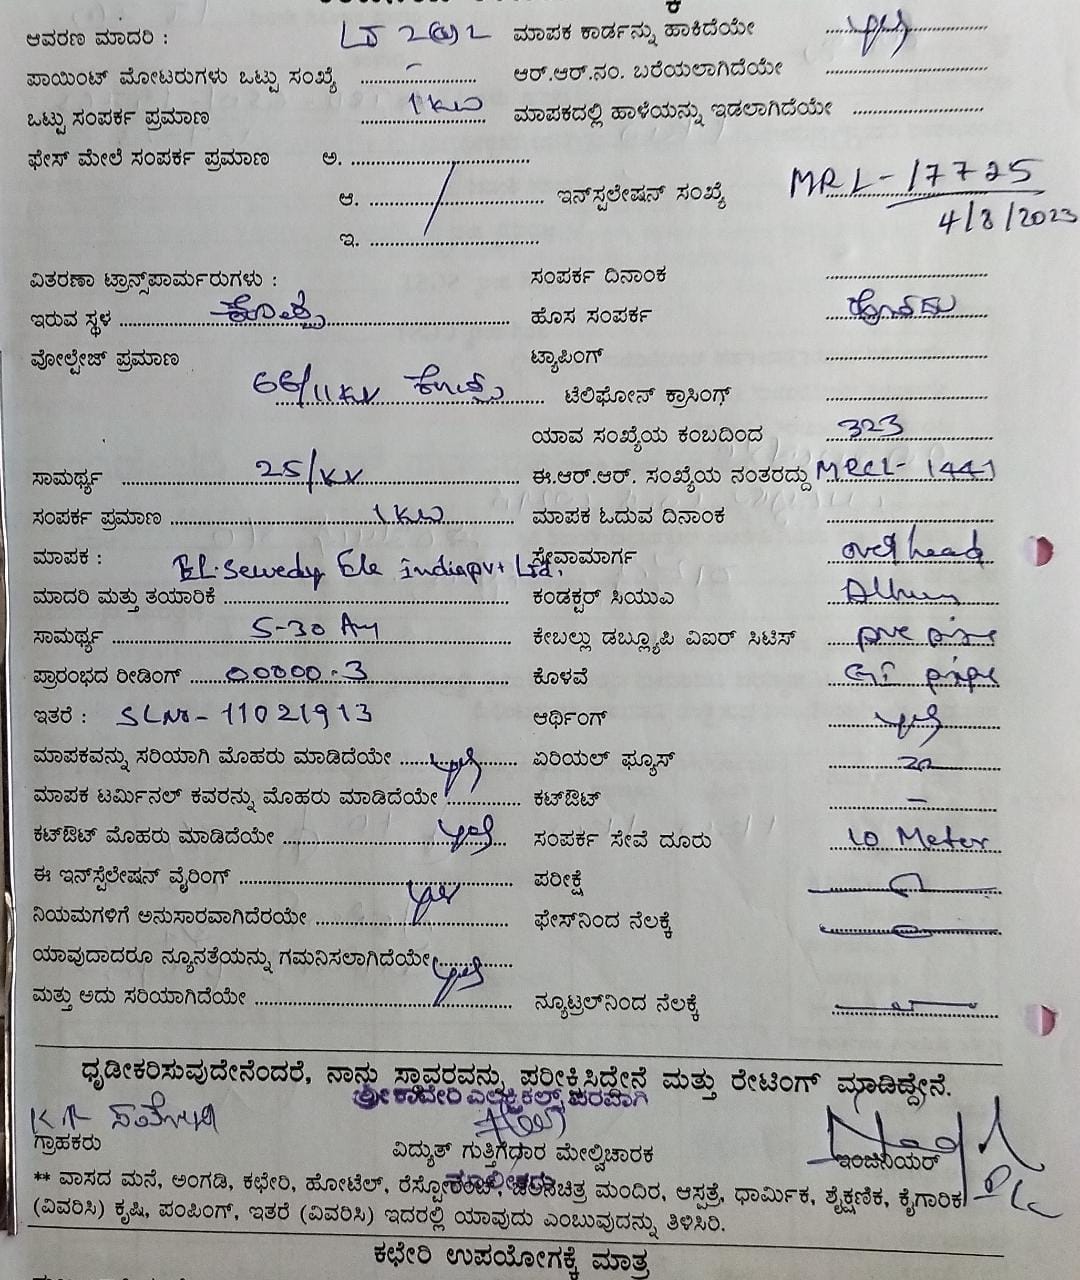 ಆವರಣ ಮಾದರಿ : LT 2(a) 2 ಮಾಪಕ ಕಾರ್ಡನ್ನು ಹಾಕಿದೆಯೇ
ಪಾಯಿಂಟ್ ಮೋಟರುಗಳು ಒಟ್ಟು ಸಂಖ್ಯೆ - ಆರ್.ಆರ್.ನಂ. ಬರೆಯಲಾಗಿದೆಯೇ
ಒಟ್ಟು ಸಂಪರ್ಕ ಪ್ರಮಾಣ 1 KW ಮಾಪಕದಲ್ಲಿ ಹಾಳೆಯನ್ನು ಇಡಲಾಗಿದೆಯೇ
ಫೇಸ್ ಮೇಲೆ ಸಂಪರ್ಕ ಪ್ರಮಾಣ ಅ.
ಆ. ಇನ್‌ಸ್ಪಲೇಷನ್ ಸಂಖ್ಯೆ MRL-17725
4/8/2023
ಇ.
ವಿತರಣಾ ಟ್ರಾನ್ಸ್‌ಪಾರ್ಮರುಗಳು : ಸಂಪರ್ಕ ದಿನಾಂಕ
ಇರುವ ಸ್ಥಳ ಹೊಸ ಸಂಪರ್ಕ
ವೋಲ್ಟೇಜ್ ಪ್ರಮಾಣ ಟ್ಯಾಪಿಂಗ್
66/11KV ಟೆಲಿಫೋನ್ ಕ್ರಾಸಿಂಗ್
ಯಾವ ಸಂಖ್ಯೆಯ ಕಂಬದಿಂದ 323
ಸಾಮರ್ಥ್ಯ 25/KV ಈ.ಆರ್.ಆರ್. ಸಂಖ್ಯೆಯ ನಂತರದ್ದು MRCL-1441
ಸಂಪರ್ಕ ಪ್ರಮಾಣ 1 KW ಮಾಪಕ ಓದುವ ದಿನಾಂಕ
ಮಾಪಕ : EL.Sewedy Ele indiapvt Ltd. ಸೇವಾಮಾರ್ಗ over head
ಮಾದರಿ ಮತ್ತು ತಯಾರಿಕೆ ಕಂಡಕ್ಟರ್ ಸಿಯುಎ
ಸಾಮರ್ಥ್ಯ 5-30 Am ಕೇಬಲ್ಲು ಡಬ್ಲ್ಯೂಪಿ ವಿಐರ್ ಸಿಟಿಸ್ pvc pipe
ಪ್ರಾರಂಭದ ರೀಡಿಂಗ್ 00000.3 ಕೊಳವೆ GI pipe
ಇತರೆ : SLNo-11021913 ಆರ್ಥಿಂಗ್
ಮಾಪಕವನ್ನು ಸರಿಯಾಗಿ ಮೊಹರು ಮಾಡಿದೆಯೇ ಏರಿಯಲ್ ಫ್ಯೂಸ್
ಮಾಪಕ ಟರ್ಮಿನಲ್ ಕವರನ್ನು ಮೊಹರು ಮಾಡಿದೆಯೇ ಕಟ್‌ಔಟ್ -
ಕಟ್‌ಔಟ್ ಮೊಹರು ಮಾಡಿದೆಯೇ ಸಂಪರ್ಕ ಸೇವೆ ದೂರು 10 Meter
ಈ ಇನ್‌ಸ್ಟೆಲೇಷನ್ ವೈರಿಂಗ್ ಪರೀಕ್ಷೆ
ನಿಯಮಗಳಿಗೆ ಅನುಸಾರವಾಗಿದೆರಯೇ ಫೇಸ್‌ನಿಂದ ನೆಲಕ್ಕೆ
ಯಾವುದಾದರೂ ನ್ಯೂನತೆಯನ್ನು ಗಮನಿಸಲಾಗಿದೆಯೇ
ಮತ್ತು ಅದು ಸರಿಯಾಗಿದೆಯೇ ನ್ಯೂಟ್ರಲ್‌ನಿಂದ ನೆಲಕ್ಕೆ
ಧೃಡೀಕರಿಸುವುದೇನೆಂದರೆ, ನಾನು ಸ್ಥಾವರವನ್ನು ಪರೀಕ್ಷಿಸಿದ್ದೇನೆ ಮತ್ತು ರೇಟಿಂಗ್ ಮಾಡಿದ್ದೇನೆ.
ಶ್ರೀ ಕಾವೇರಿ ಎಲೆಕ್ಟ್ರಿಕಲ್ಸ್ ಪರವಾಗಿ
ಗ್ರಾಹಕರು ವಿದ್ಯುತ್ ಗುತ್ತಿಗೆಧಾರ ಮೇಲ್ವಿಚಾರಕ ಇಂಜಿನಿಯರ್
** ವಾಸದ ಮನೆ, ಅಂಗಡಿ, ಕಛೇರಿ, ಹೋಟೆಲ್, ರೆಸ್ಟೋರೆಂಟ್, ಚಲನಚಿತ್ರ ಮಂದಿರ, ಆಸ್ಪತ್ರೆ, ಧಾರ್ಮಿಕ, ಶೈಕ್ಷಣಿಕ, ಕೈಗಾರಿಕ
(ವಿವರಿಸಿ) ಕೃಷಿ, ಪಂಪಿಂಗ್, ಇತರೆ (ವಿವರಿಸಿ) ಇದರಲ್ಲಿ ಯಾವುದು ಎಂಬುವುದನ್ನು ತಿಳಿಸಿರಿ.
ಕಛೇರಿ ಉಪಯೋಗಕ್ಕೆ ಮಾತ್ರ